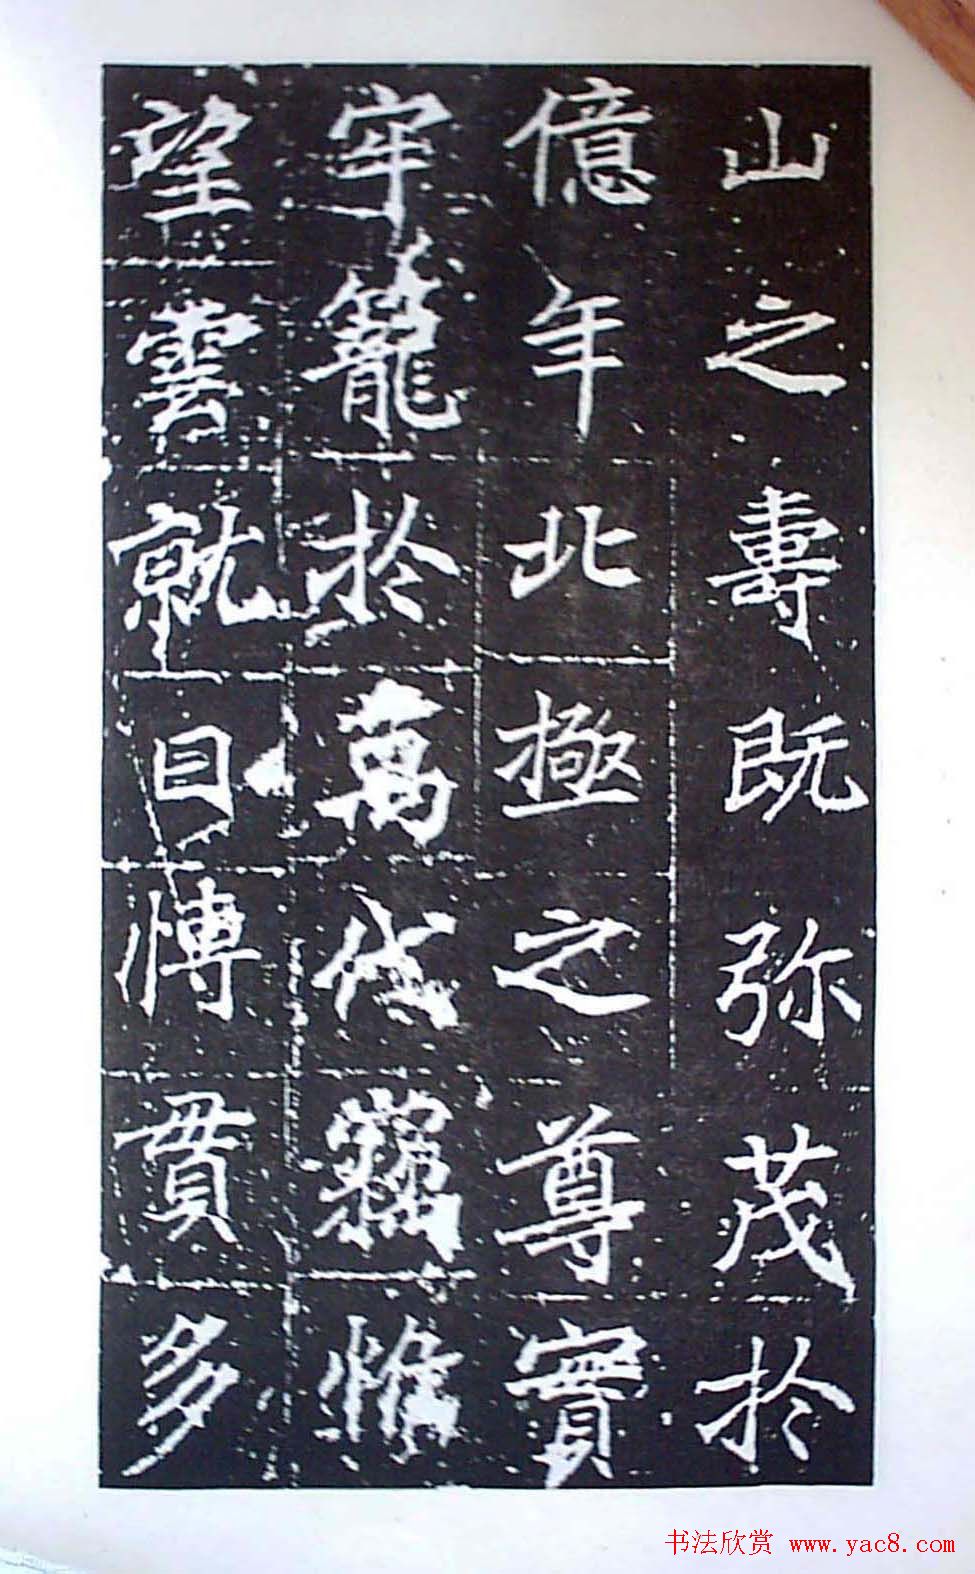 山之壽既弥茂於
億年北極之尊實
牢籠於萬代竊惟
望雲就日博貫多
书法欣赏 www.yac8.com